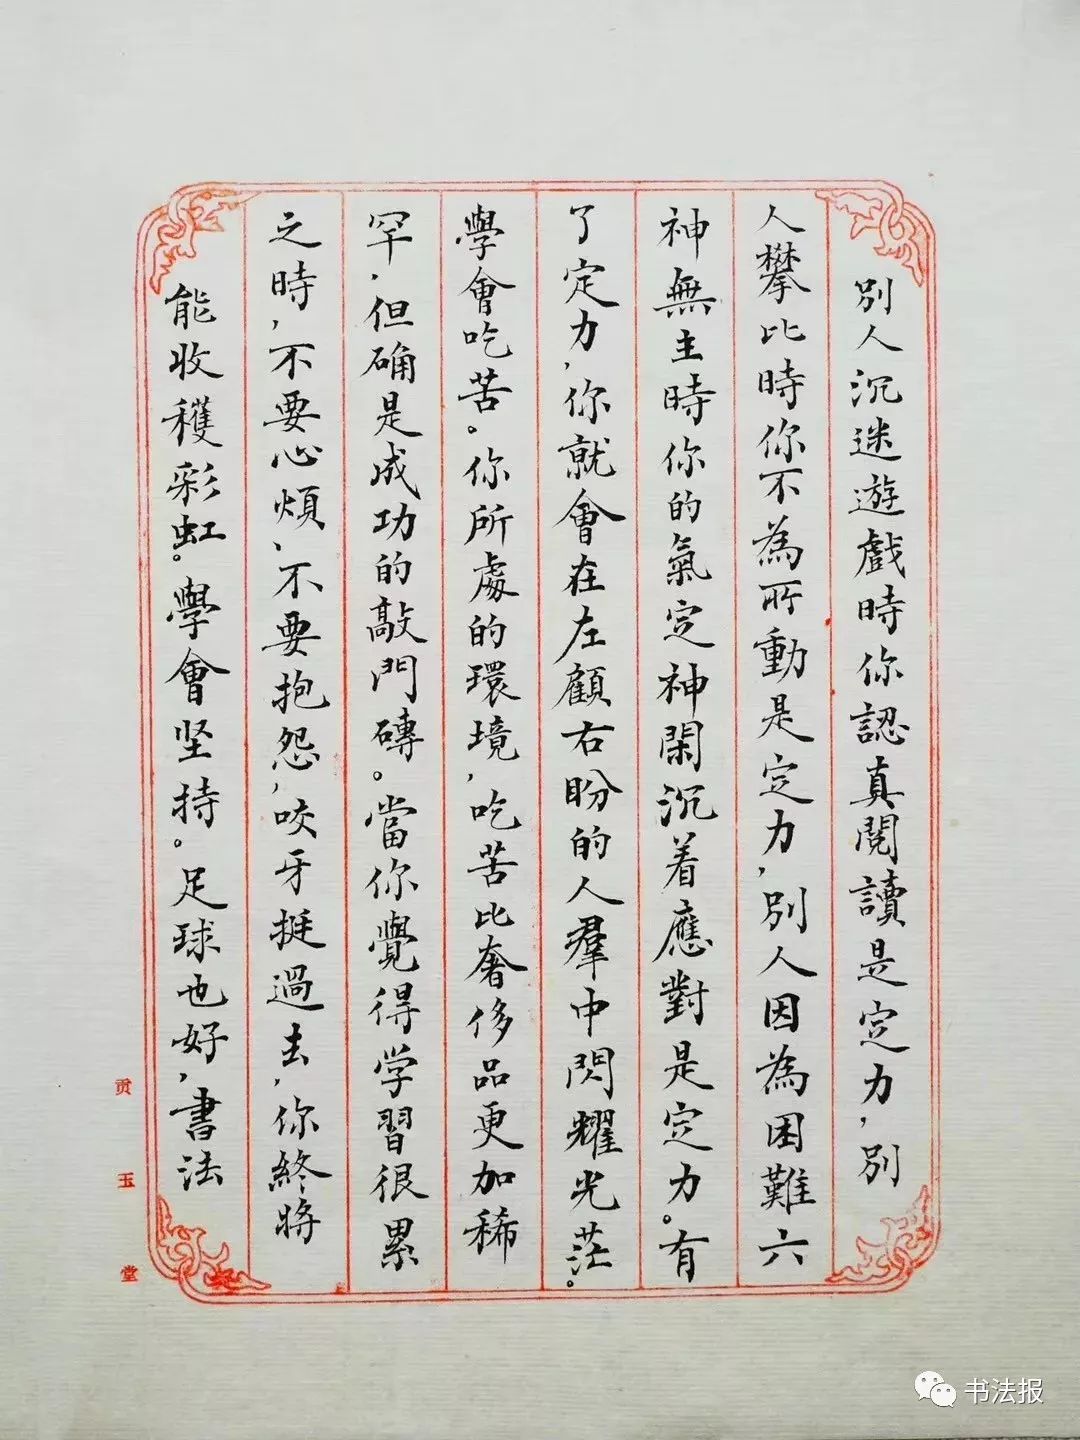 別人沉迷遊戲時你認真閱讀是定力,別
人攀比時你不為所動是定力,別人因為困難六
神無主時你的氣定神閑沉着應對是定力。有
了定力,你就會在左顧右盼的人羣中閃耀光茫。
學會吃苦。你所處的環境,吃苦比奢侈品更加稀
罕,但确是成功的敲門磚。當你覺得学習很累
之時,不要心煩、不要抱怨,咬牙挺過去,你終將
能收穫彩虹。學會坚持。足球也好,書法
贡玉堂
书法报